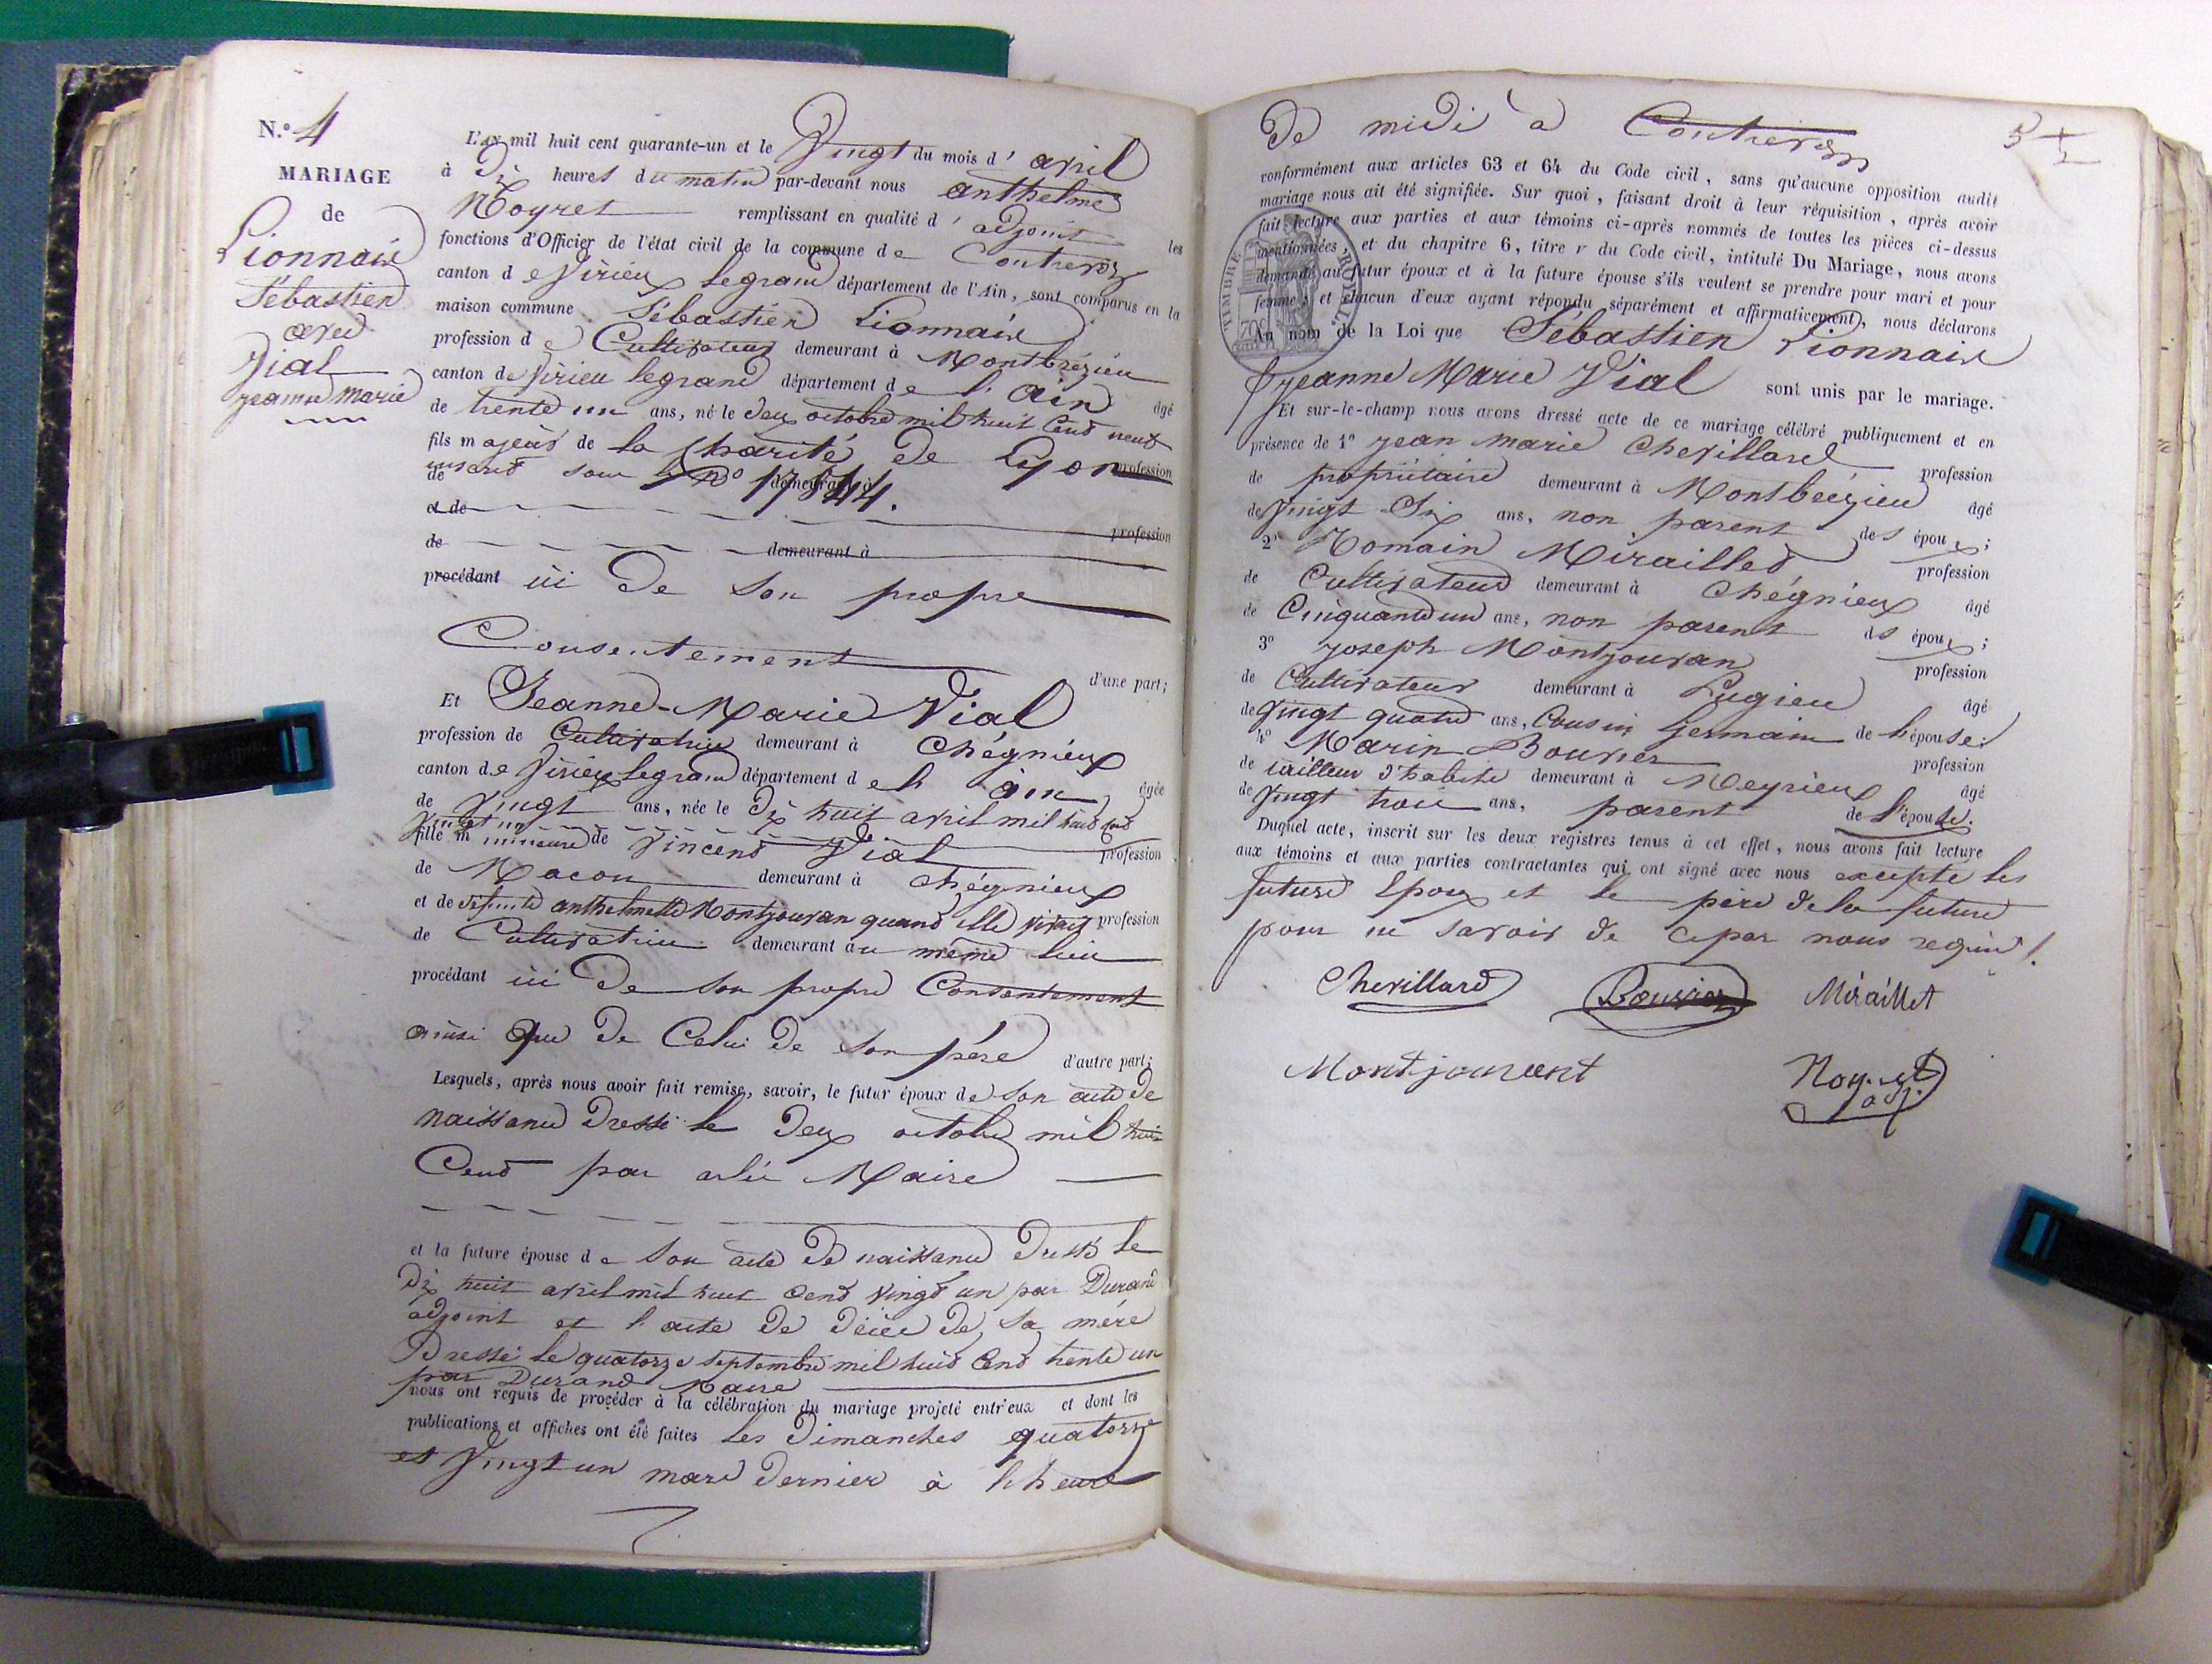 N.º 4
MARIAGE
de
Lionnais
Sébastien
avec
Vial
jeanne marie
L'an mil huit cent quarante-un et le Vingt du mois d' avril
à Dix heures du matin par-devant nous anthelme
Noyret remplissant en qualité d' adjoint les
fonctions d'Officier de l'état civil de la commune de Contrevoz
canton de Virieu legrand département de l'Ain, sont comparus en la
maison commune Sébastien Lionnais
profession de Cultivateur demeurant à Montbrézieu
canton de Virieu legrand département de l'ain âgé
de trente un ans, né le deux octobre mil huit Cent neuf
fils majeur de la Charité de Lyon profession
de inscrit sous le No demeurant à
et de profession
de demeurant à
procédant ici de son propre
Consentement
d'une part;
Et Jeanne-Marie Vial
profession de Cultivatrice demeurant à Chégnieux
canton de Virieu legrand département de l'ain âgée
de vingt ans, née le Dix huit avril mil huit cent
vingt un
fille mineure de Vincent Vial profession
de Macon demeurant à Chégnieux
et de défunte anthelmette Montjouvan quand elle vivait profession
de Cultivatrice demeurant au même lieu
procédant ici De son propre Consentement
ainsi que de Celui de son père d'autre part;
Lesquels, après nous avoir fait remise, savoir, le futur époux de son acte de
naissance Dressé le Deux octobre mil huit
Cent par Maire
et la future épouse de son acte de naissance Dressé le
Dix huit avril mil huit cent vingt un par Durand
adjoint et l'acte de décée de sa mère
Dressé le quatorze septembre mil huit Cent trente un
par Durand Maire
nous ont requis de procéder à la célébration du mariage projeté entr'eux et dont les
publications et affiches ont été faites les Dimanches quatorze
et Vingt un mars Dernier à l'heure
De midi à Contrevoz
5
conformément aux articles 63 et 64 du Code civil, sans qu'aucune opposition audit
mariage nous ait été signifiée. Sur quoi, faisant droit à leur réquisition, après avoir
fait lecture aux parties et aux témoins ci-après nommés de toutes les pièces ci-dessus
mentionnées, et du chapitre 6, titre v du Code civil, intitulé Du Mariage, nous avons
demandé au futur époux et à la future épouse s'ils veulent se prendre pour mari et pour
femme; et chacun d'eux ayant répondu séparément et affirmativement, nous déclarons
Au nom de la Loi que Sébastien Lionnais
& jeanne Marie Vial sont unis par le mariage.
Et sur-le-champ nous avons dressé acte de ce mariage célébré publiquement et en
présence de 1º jean marie Chevillard profession
de propriétaire demeurant à Montbrézieu âgé
de vingt Six ans, non parent des époux;
2º Romain Miraillet profession
de Cultivateur demeurant à Chégnieux âgé
de Cinquante un ans, non parent des époux;
3º joseph Montjouvan profession
de Cultivateur demeurant à Pugieu âgé
de vingt quatre ans, Cousin germain de l'épouse;
4º Marin Bouvier profession
de tailleur d'habits demeurant à Meyrieux âgé
de vingt trois ans, parent de l'épouse.
Duquel acte, inscrit sur les deux registres tenus à cet effet, nous avons fait lecture
aux témoins et aux parties contractantes qui ont signé avec nous excepté les
futurs Epoux et le père de la future
pour ne savoir de ce par nous requis.
Chevillard Bouvier Miraillet
Montjouvent Noyret
adj.
TIMBRE ROYAL